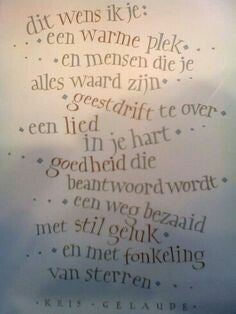 dit wens ik je:
een warme plek
en mensen die je
alles waard zijn
geestdrift te over
een lied
in je hart
goedheid die
beantwoord wordt
een weg bezaaid
met stil geluk
en met fonkeling
van sterren
· KRIS · GELAUDE ·